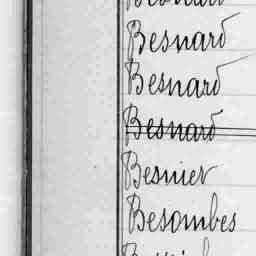 Besnard
Besnard
Besnard
Besnier
Besombes